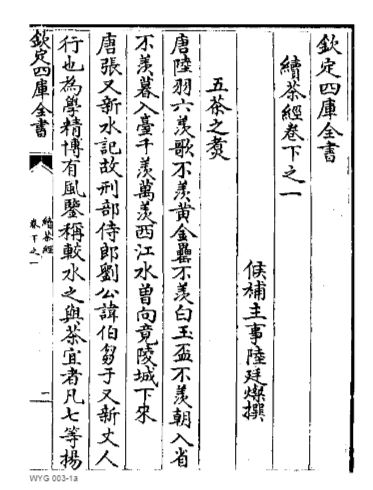 欽定四庫全書
續茶經卷下之一
候補主事陸廷燦撰
五茶之煑
唐陸羽六羨歌不羨黄金罍不羨白玉盃不羨朝入省
不羨暮入臺千羨萬羨西江水曽向竟陵城下来
唐張又新水記故刑部侍郎劉公諱伯芻于又新丈人
行也為學精博有風鑒稱較水之與茶宜者凡七等揚
欽定四庫全書
續茶經
卷下之一
一
WYG 003-1a